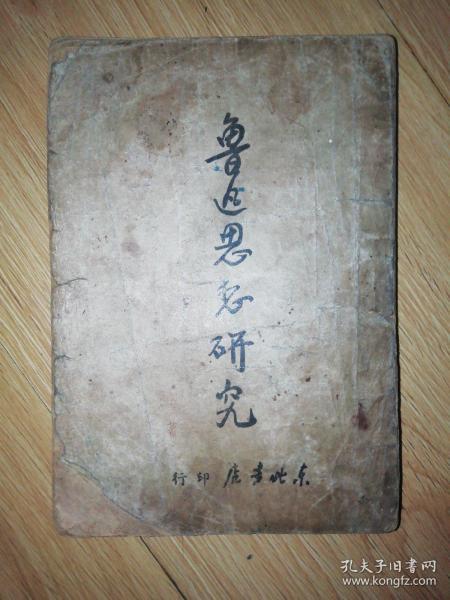 鲁迅思想研究
东北书店印行
孔夫子旧书网
www.kongfz.com